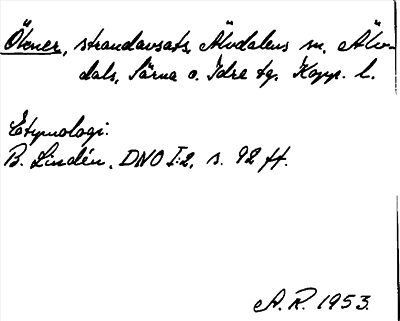 Öxner, strandavsats, Älvdalens sn, Älv-
dals, Särna o. Idre tg. Kopp. l.
Etymologi:
B. Lindén, DNO I:2, s. 92 ff.
A.R. 1953.